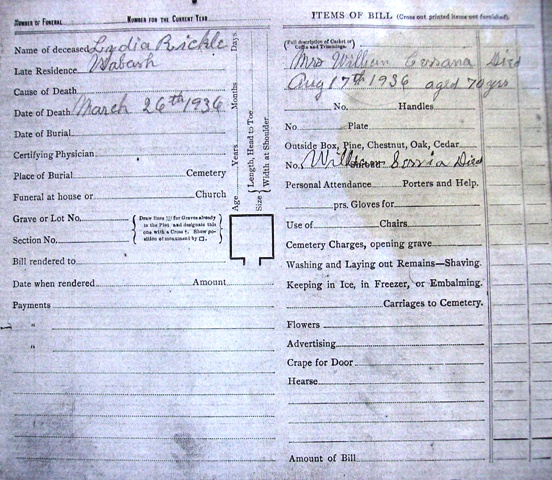 NUMBER OF FUNERAL NUMBER FOR THE CURRENT YEAR
Name of deceased Lydia Rickle
Late Residence Wabash
Cause of Death
Date of Death March 26th 1936
Date of Burial
Certifying Physician
Place of Burial Cemetery
Funeral at house or Church
Grave or Lot No.
Section No.
Draw lines for Graves already
in the Plot and designate this
one with a Cross †. Show po-
sition of monument by □.
Bill rendered to
Date when rendered Amount
Payments
"
"
Age Years Months Days
Size { Length, Head to Toe
Width at Shoulder
ITEMS OF BILL (Cross out printed items not furnished).
(Full description of Casket or
Coffin and Trimmings.
Mrs William Died
Aug 17th 1936 aged 70 yrs
No. Handles
No Plate
Outside Box, Pine, Chestnut, Oak, Cedar
No. William Died
Personal Attendance Porters and Help.
prs. Gloves for
Use of Chairs
Cemetery Charges, opening grave
Washing and Laying out Remains—Shaving.
Keeping in Ice, in Freezer, or Embalming.
Carriages to Cemetery.
Flowers
Advertising
Crape for Door
Hearse
Amount of Bill